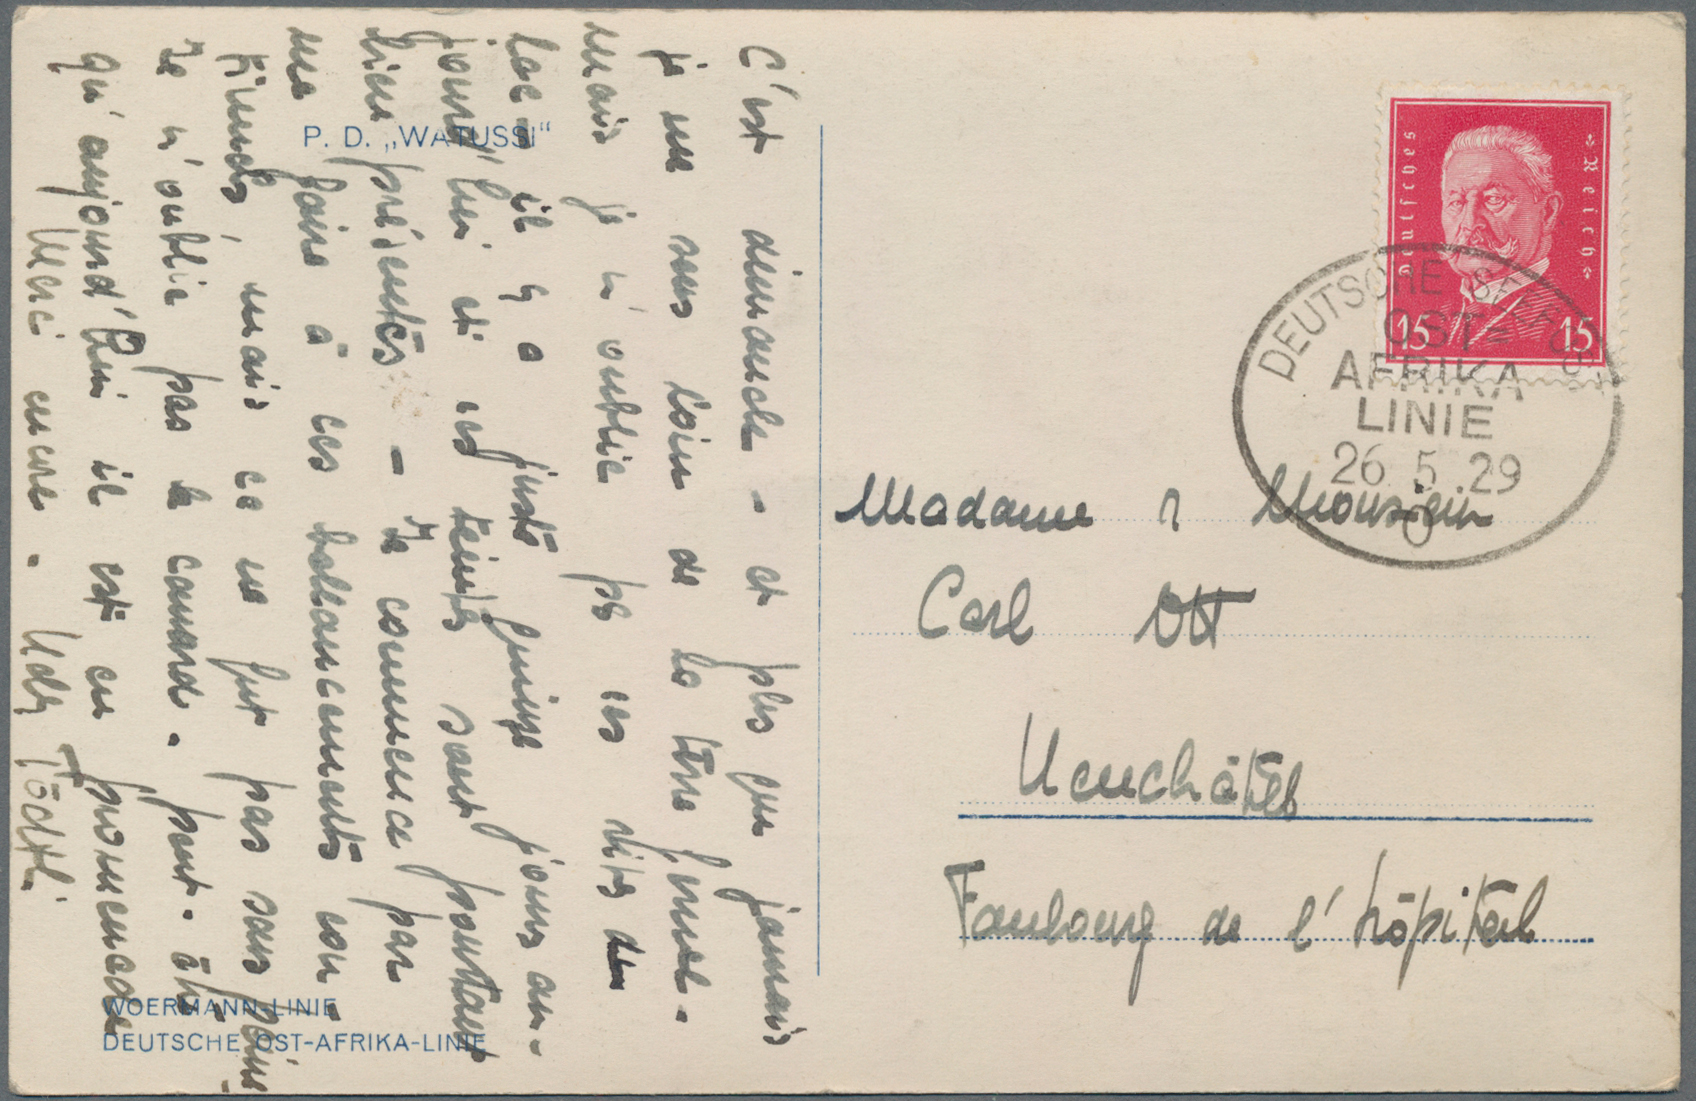 P. D. „WATUSSI“
C'est dimanche - et plus que jamais
je me sens loin de la terre ferme -
mais je n'oublie pas ces rives du
lac - il y a juste quinze jours au-
jourd'hui et ces teintes sont pourtant
bien présentes - Je commence par
me faire à ces balancements con-
tinuels, mais ce ne fut pas sans peine
Je n'oublie pas le canard - peut-être
qu'aujourd'hui il est en promenade
Merci encore -
WOERMANN-LINIE
DEUTSCHE OST-AFRIKA-LINIE
Deutsches Reich
15 15
DEUTSCHE SEEPOST
OST=
AFRIKA
LINIE
26.5.29
O
Madame & Monsieur
Carl Ott
Neuchâtel
Faubourg de l'hôpital